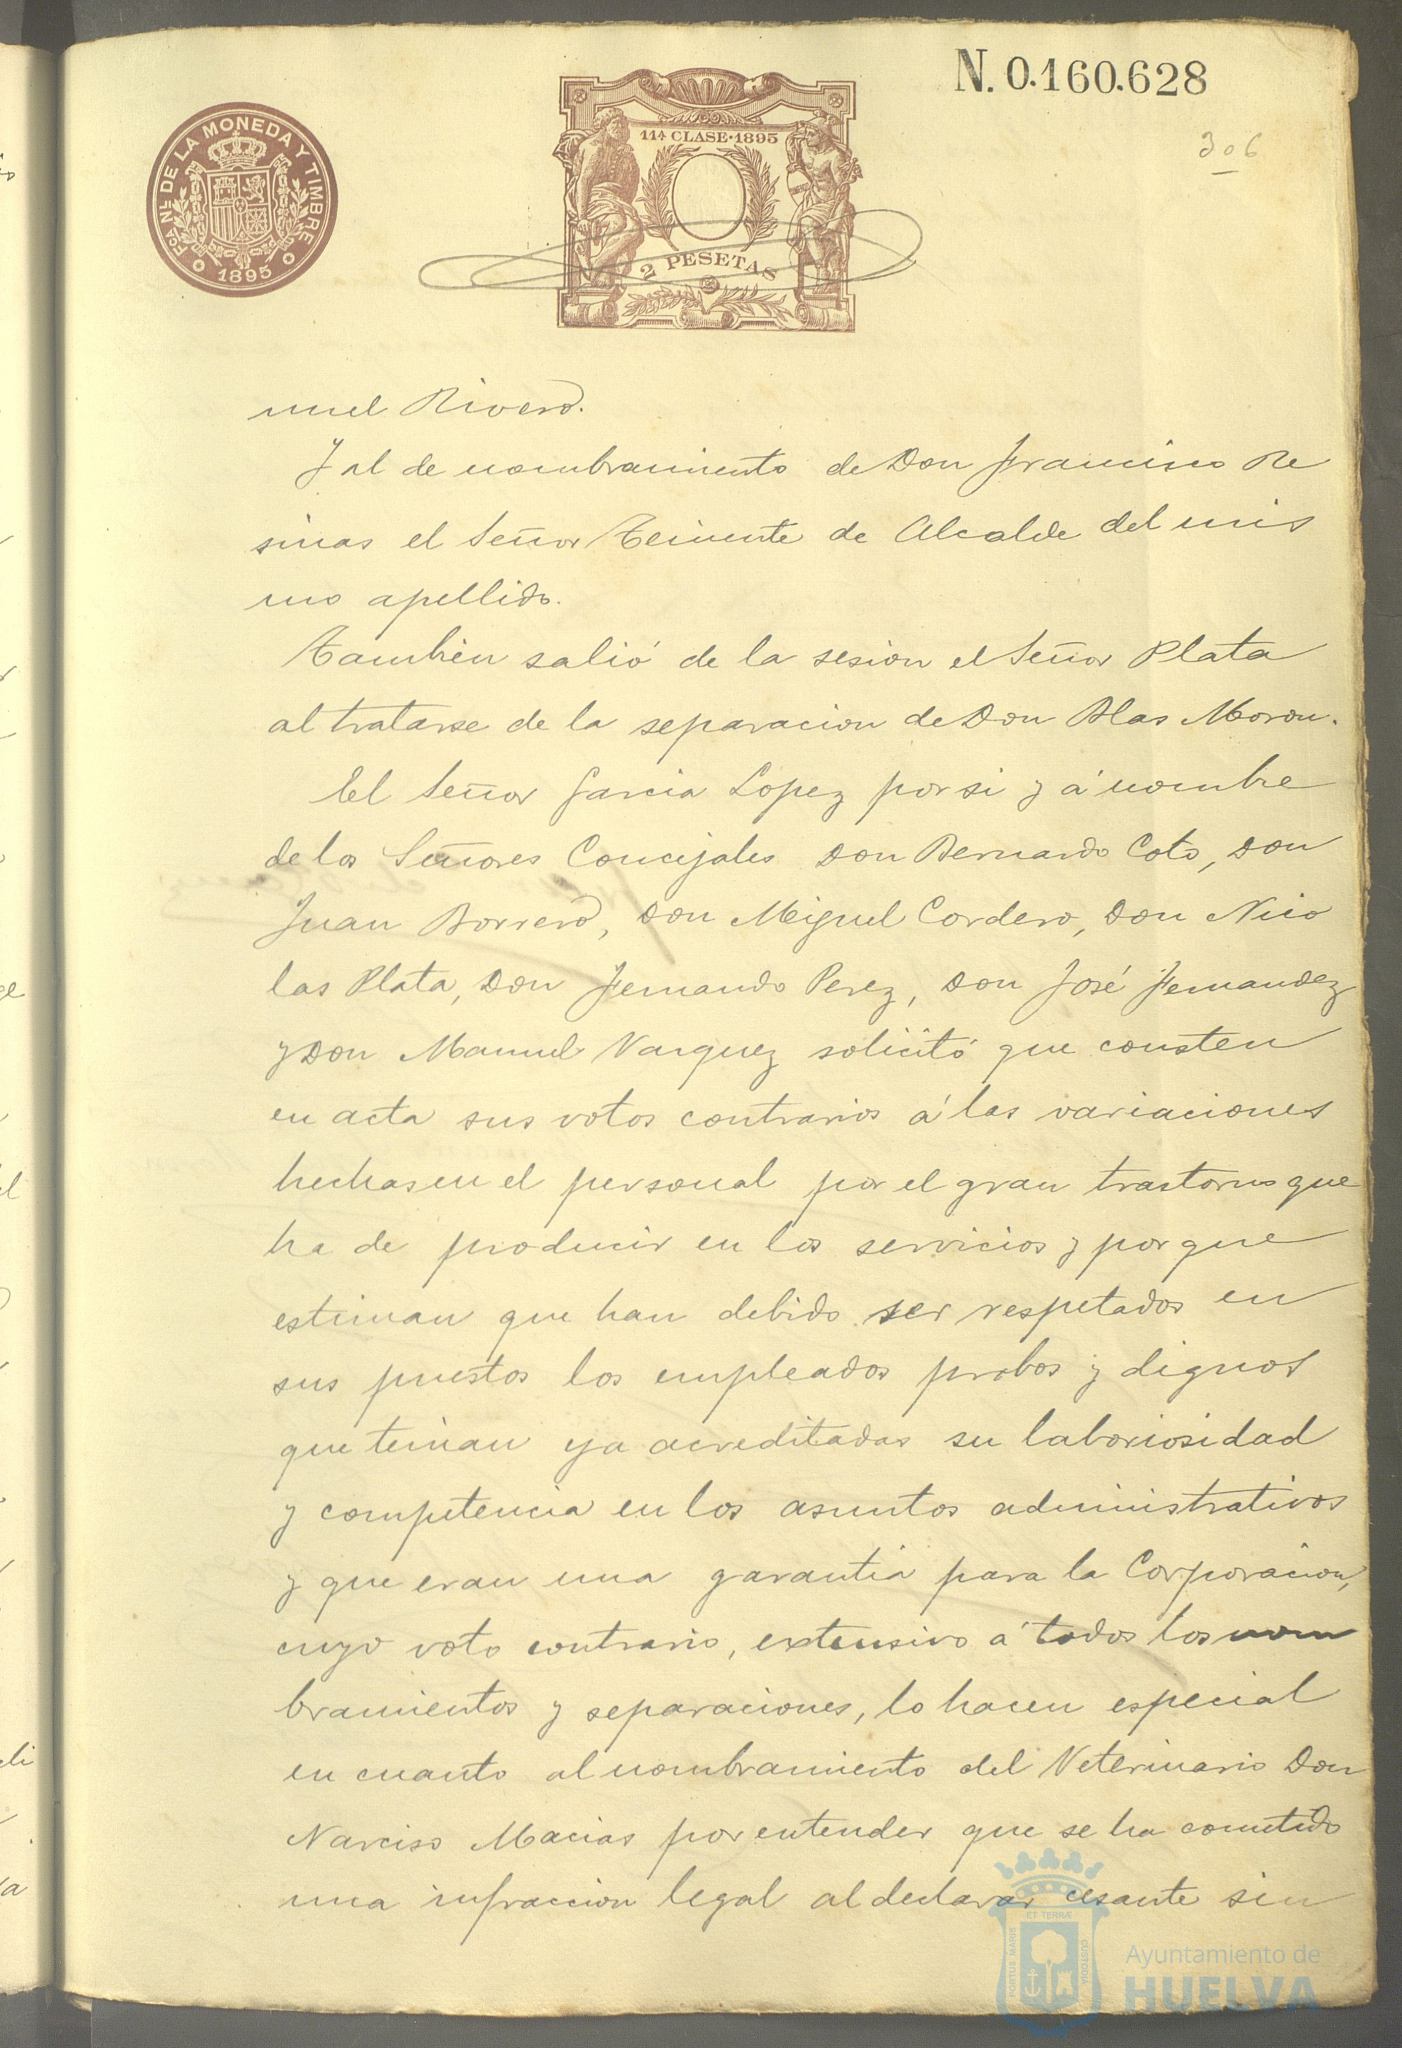 N. 0.160.628
306
FCA NL DE LA MONEDA Y TIMBRE
1895
11ª CLASE·1895
2 PESETAS
nuel Rivero.
Y al de nombramiento de Don Francisco Re
sinas el Señor Teniente de Alcalde del mis
mo apellido.
Tambien salió de la sesion el Señor Plata
al tratarse de la separacion de Don Blas Moron.
El Señor Garcia Lopez por si y á nombre
de los Señores Concejales Don Bernardo Coto, Don
Juan Borrero, Don Miguel Cordero, Don Nico
las Plata, Don Fernando Perez, Don José Fernandez
y Don Manuel Vazquez solicitó que consten
en acta sus votos contrarios á las variaciones
hechas en el personal por el gran trastorno que
ha de producir en los servicios y por que
estiman que han debido ser respetados en
sus puestos los empleados probos y dignos
que tenian ya acreditadas su laboriosidad
y competencia en los asuntos administrativos
y que eran una garantia para la Corporacion,
cuyo voto contrario, extensivo á todos los nom
bramientos y separaciones, lo hacen especial
en cuanto al nombramiento del Veterinario Don
Narciso Macias por entender que se ha cometido
una infraccion legal al declarar cesante sin
PORTUS MARIS ET TERRÆ CUSTODIA
Ayuntamiento de
HUELVA